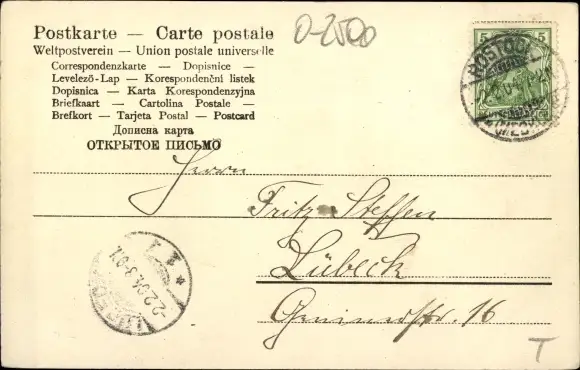 Postkarte — Carte postale
Weltpostverein — Union postale universelle
Correspondenzkarte — Dopisnice —
Levelező-Lap — Korespondenční listek
Dopisnica — Karta Korespondenzyjna
Briefkaart — Cartolina Postale —
Brefkort — Tarjeta Postal — Postcard
Дописна карта
ОТКРЫТОЕ ПИСЬМО
0-2500
5 5
ROSTOCK
(MECKL
Herrn
Fritz Steffen
Lübeck
16
T